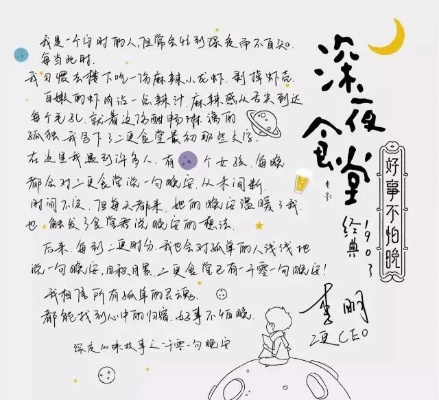 我是一个守时的人,但常会忙到深夜而不自知。
每当此时,
我习惯去楼下吃一份麻辣小龙虾,剥掉虾壳,
白嫩的虾肉沾一点辣汁,麻辣感从舌尖到达
每个毛孔,就着这份酣畅淋漓的
孤独,我写下了二更食堂最初那些文字。
在这里我遇到许多人,有一个女孩,每晚
都会对二更食堂说一句晚安,从未间断,
时间不定,但每天都来,她的晚安温暖了我,
也触发了食堂君说晚安的想法。
后来,每到二更时分,我也会对孤单的人浅浅地
说一句晚安,日积月累,二更食堂已有一千零一句晚安!
我相信所有孤单的灵魂,
都能找到心中的归宿,好事不怕晚。
深夜的味故事之一千零一句晚安
深夜食堂
好事不怕晚
经典1903
李明
二更CEO